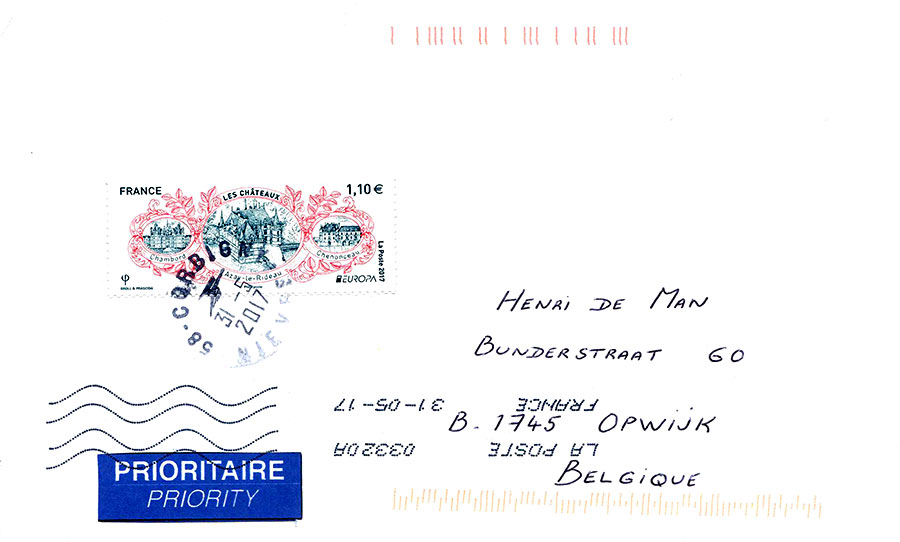 FRANCE
LES CHÂTEAUX
1,10 €
Chambord
Azay-le-Rideau
Chenonceau
La Poste 2017
φ
BROLL & PRASCIDA
EUROPA
58-CORBIGNY
NIEVRE
31-5
2017
HENRI DE MAN
BUNDERSTRAAT 60
B. 1745 OPWIJK
BELGIQUE
LA POSTE 03320A
FRANCE 31-05-17
PRIORITAIRE
PRIORITY